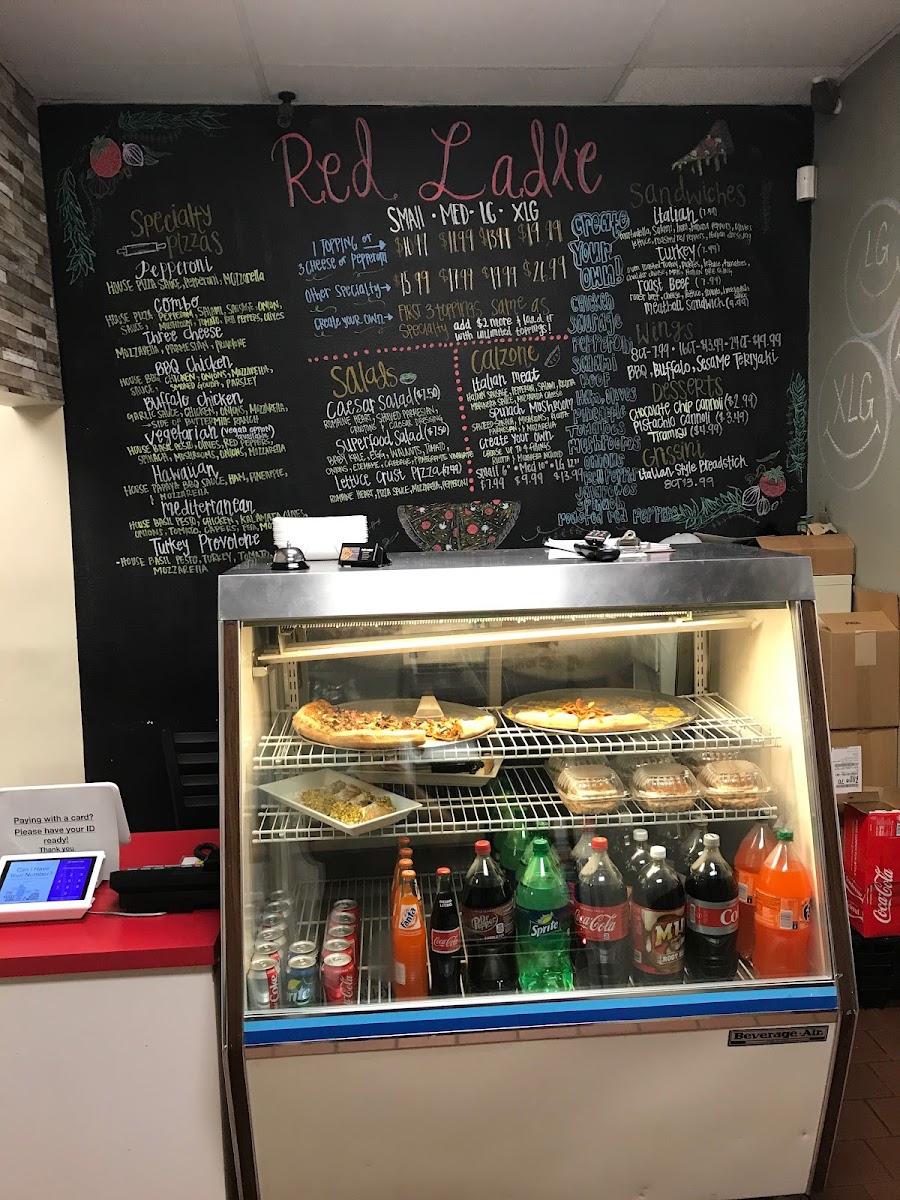 Red Ladle
SMALL · MED · LG · XLG
1 TOPPING or
3 CHEESE or PEPPERONI
$11.99 $13.99 $19.99
Other Specialty
$15.99 $17.99 $19.99 $26.99
Create your own
FIRST 3 toppings same as
Specialty add $2 more & load it
with unlimited toppings!
Specialty
Pizzas
Pepperoni
HOUSE PIZZA SAUCE, PEPPERONI, MOZZARELLA
Combo
HOUSE PIZZA SAUCE, PEPPERONI, SALAMI, SAUSAGE, ONION,
MUSHROOM, TOMATO, BELL PEPPERS, OLIVES
Three Cheese
MOZZARELLA, PARMESAN, PROVOLONE
BBQ Chicken
HOUSE BBQ SAUCE, CHICKEN, ONIONS, MOZZARELLA,
SMOKED GOUDA, PARSLEY
Buffalo Chicken
GARLIC SAUCE, CHICKEN, ONIONS, MOZZARELLA,
SIDE OF BUTTERMILK RANCH
Vegetarian (vegan option available)
HOUSE BASIL PESTO, OLIVES, RED PEPPERS,
SPINACH, MUSHROOMS, ONIONS, MOZZARELLA
Hawaiian
HOUSE PIZZA SAUCE, HAM, PINEAPPLE,
MOZZARELLA
Mediterranean
HOUSE BASIL PESTO, CHICKEN, KALAMATA OLIVES,
ONIONS, TOMATO, CAPERS, FETA
Turkey Provolone
HOUSE BASIL PESTO, TURKEY, TOMATO
MOZZARELLA
Salads
Caesar Salad ($7.50)
ROMAINE HEART, SHAVED PARMESAN,
CROUTONS & CAESAR DRESSING
Superfood Salad ($7.50)
BABY KALE, EGG, WALNUTS, TOMATO,
ONIONS, EDEMAME, CABBAGE, POMEGRANATE VINAIGRETTE
Lettuce Crust Pizza
ROMAINE HEART, PIZZA SAUCE, MOZZARELLA, PEPPERONI
Calzone
Italian Meat
ITALIAN SAUSAGE, PEPPERONI, SALAMI, RICOTTA
MARINARA SAUCE, MOZZARELLA CHEESE
Spinach Mushroom
& PARMESAN
Create your own
CHOOSE UP TO 4 TOPPINGS
RICOTTA & MOZZARELLA INCLUDED
Small 6" · Med 10" · LG 12"
$7.99 $9.99 $13.99
Create
Your
Own!
Chicken
Sausage
Pepperoni
Salami
Beef
Ham, Olives
Pineapple
Tomatoes
Mushrooms
Onions
Bell Peppers
Jalapenos
Spinach
Roasted Red Peppers
Sandwiches
Italian
mortadella, Salami, ham, banana peppers, olives
lettuce, roasted red peppers, Italian dressing
Turkey
Roast Beef
Meatball Sandwich
Wings
8CT-7.99 · 16CT-$13.99 - 24CT-$19.99
BBQ, Buffalo, Sesame Teriyaki
Desserts
Chocolate Chip Cannoli ($2.99)
Pistachio Cannoli ($3.49)
Tiramisu ($4.99)
Grissini
Italian Style Breadstick
8CT $3.99
LG
XLG
Paying with a card?
Please have your ID
ready!
Thank you
Can I Have
Your Number?
Fanta
Coca-Cola
Dr Pepper
Sprite
Coca-Cola
MUG
ROOT BEER
Coke
Coca-Cola
Coca-Cola
Beverage-Air